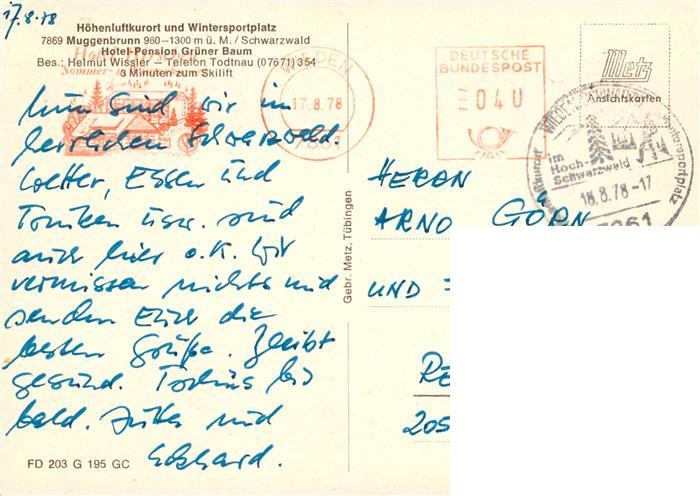 17.8.78
Höhenluftkurort und Wintersportplatz
7869 Muggenbrunn 960–1300 m ü. M. / Schwarzwald
Hotel-Pension Grüner Baum
Bes.: Helmut Wissler – Telefon Todtnau (07671) 354
3 Minuten zum Skilift
Nun sind wir im
herrlichen Schwarzwald.
Wetter, Essen und
Trinken usw. sind
auch hier o.K. Wir
vermissen nichts und
senden Euch die
besten Grüße. Bleibt
gesund. Tschüs bis
bald. Jutta und
Eckhard.
FD 203 G 195 GC
Gebr. Metz, Tübingen
WIEDEN
17.8.78
7861
DEUTSCHE
BUNDESPOST
040
Metz
Ansichtskarten
im
Hoch-
Schwarzwald
18.8.78-17
HERRN
ARNO GÖRN
UND
205